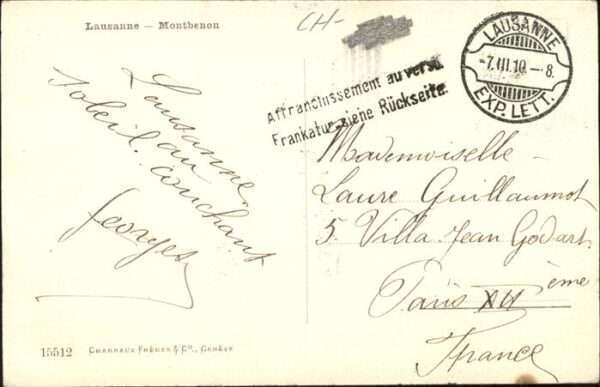 Lausanne — Montbenon
CH-
Affranchissement au verso.
Frankatur siehe Rückseite.
LAUSANNE
-7.III.10.-8.
EXP. LETT.
Lausanne.
soleil au
couchant
Georges
Mademoiselle
Laure Guillaumot
5. Villa Jean Godart.
Paris XII ème
France
15512
Charnaux Frères & Co., Genève